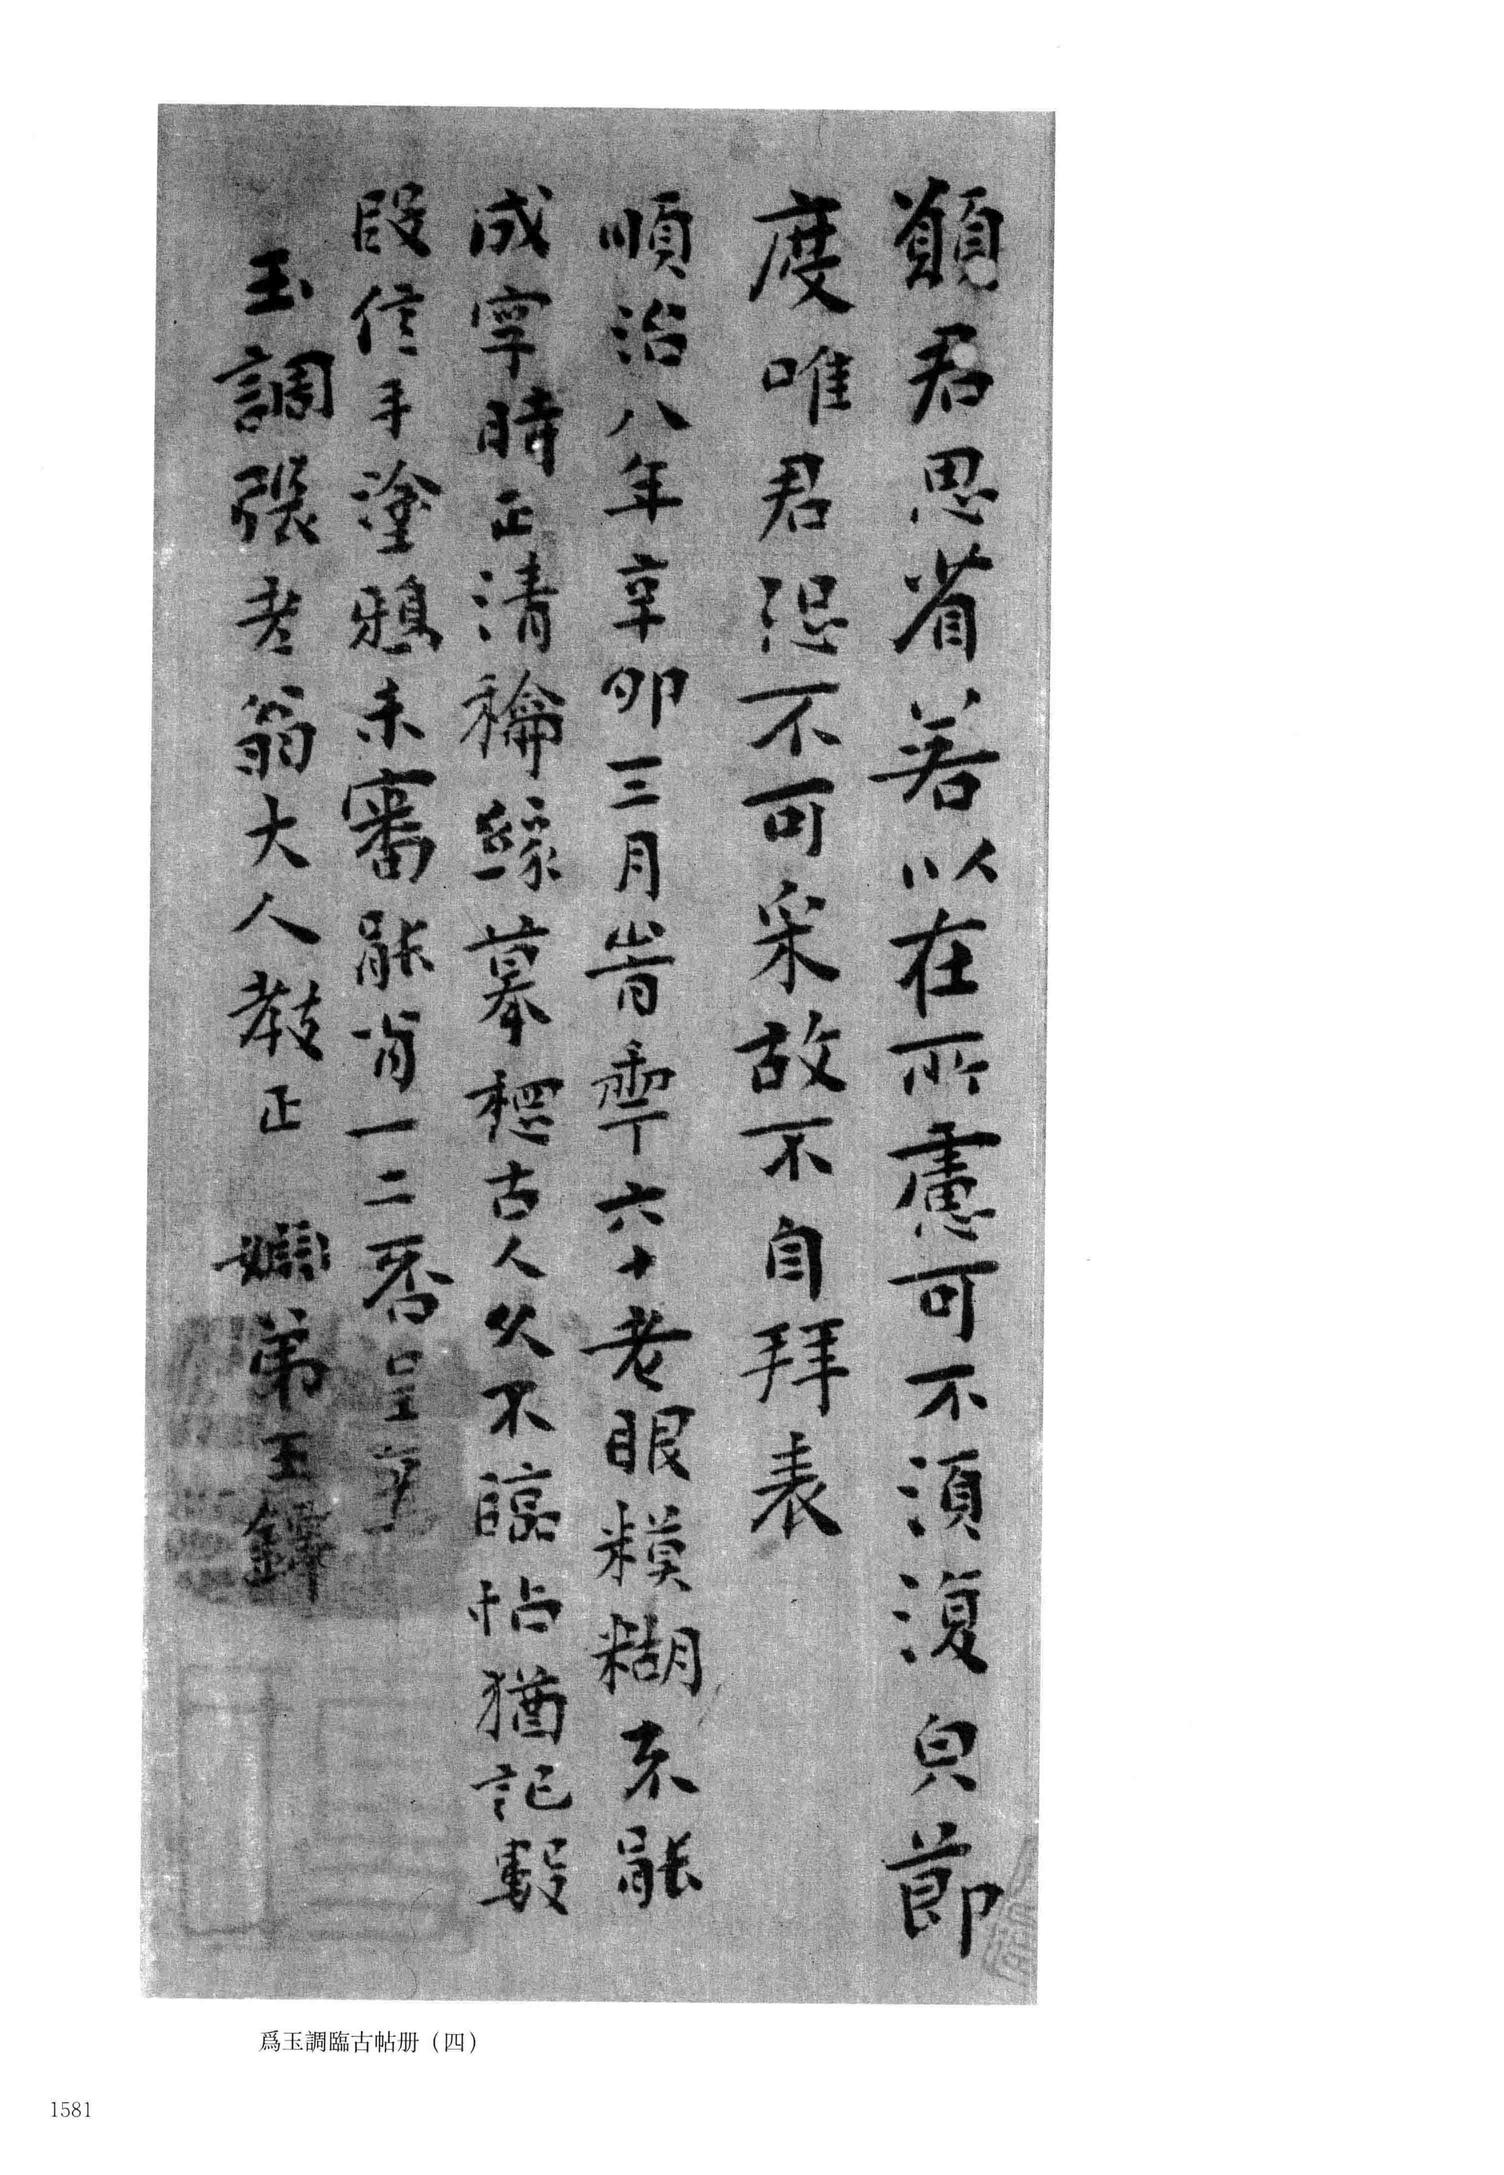 願君思省若以在所慮可不須復皃節
度唯君恐不可采故不自拜表
順治八年辛卯三月旹秊六十老眼糢糊不能
成字時正清穐繇摹穩古人久不臨帖猶記數
段信手塗鴉未審能肖一二否呈
玉調張老翁大人教正 姻弟王鐸
爲玉調臨古帖册（四）
1581